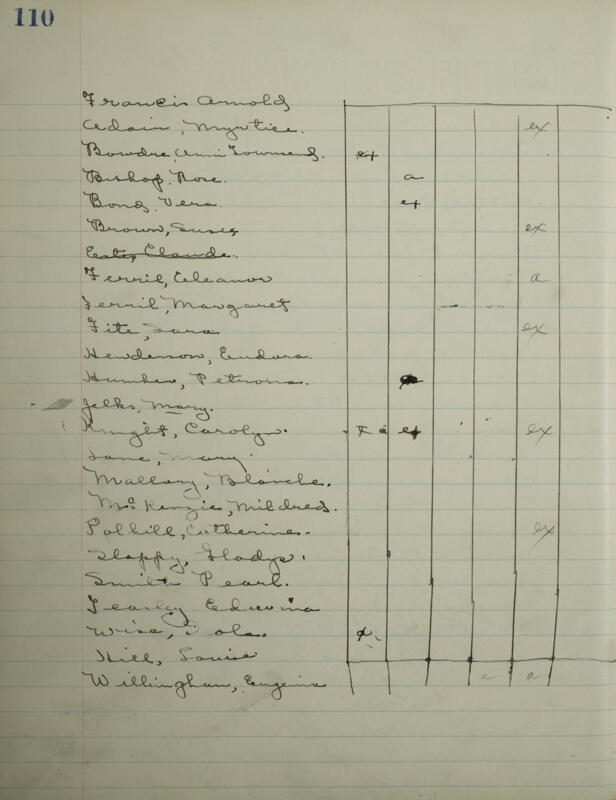 110
Francis Arnold
Adair, Myrtice. ex
Bowdre, Ann Townsend. ex
Bishop, Rose. a
Bond, Vera ex
Brown, Susie ex
Estes, Claude.
Ferril, Eleanor a
Ferril, Margaret
Fite, Sara ex
Henderson, Eudora.
Petrona.
Jelks, Mary.
Knight, Carolyn. x a ex ex
Lane, Mary
Mallory, Blanche.
McKenzie, Mildred.
Polhill, Catherine. ex
Slappy, Gladys.
Smith Pearl.
Edwina
Wise, Iola. x
Hill, Louise
Willingham, Eugenia a a